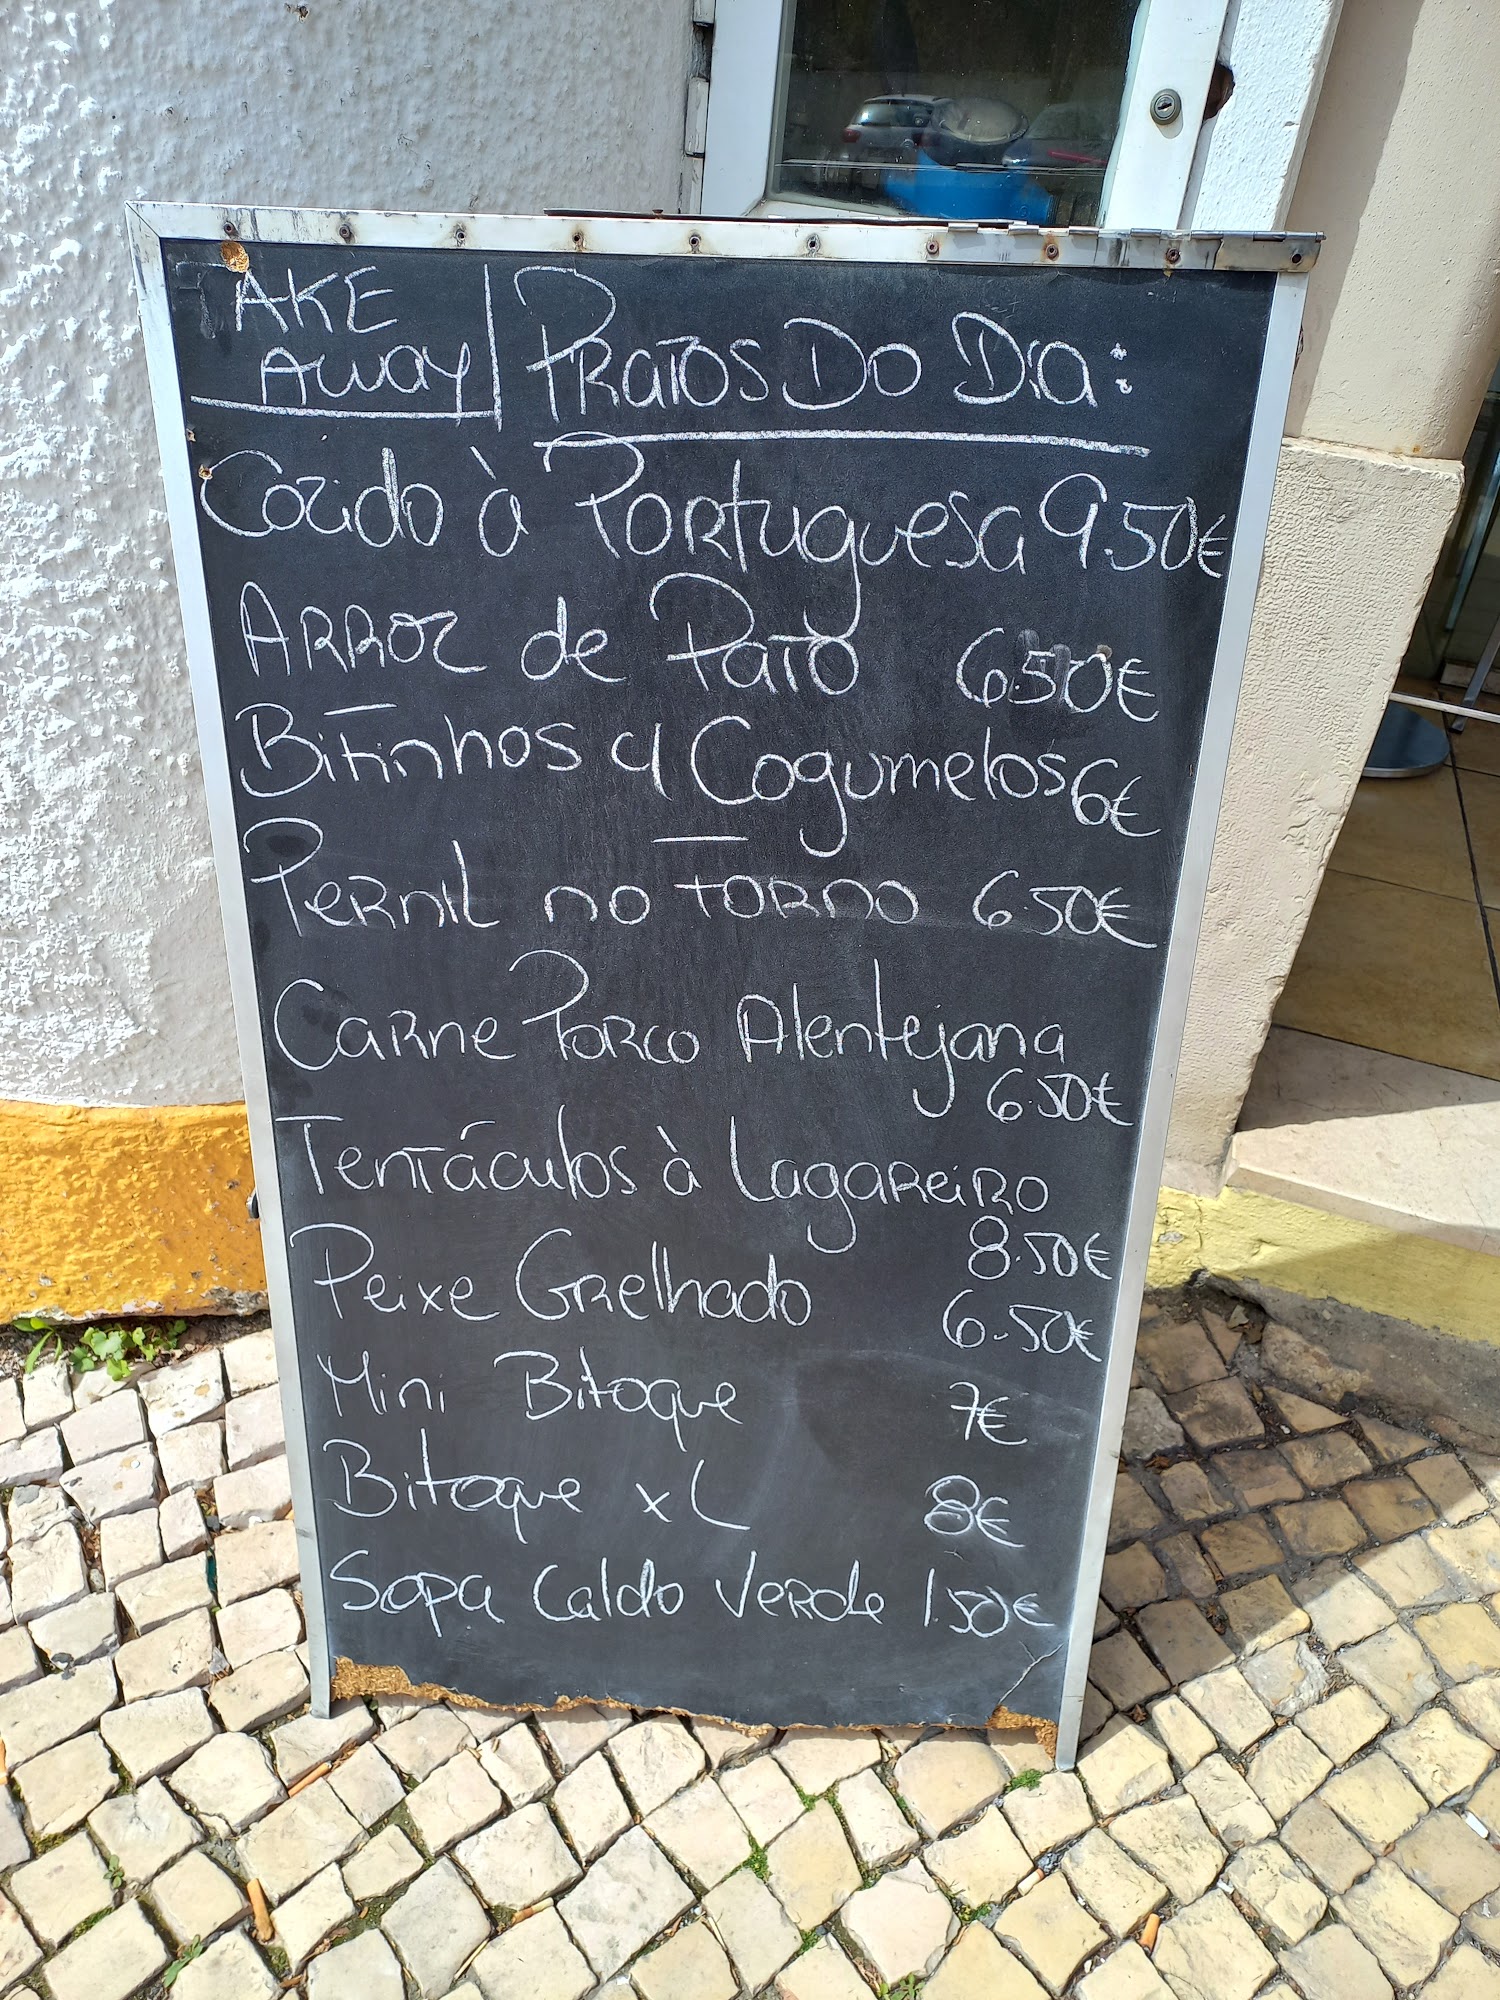 TAKE AWAY | PRATOS DO DIA:
Cozido à Portuguesa 9.50€
ARROZ de Pato 6.50€
Bifinhos c/ Cogumelos 6€
Pernil no Forno 6.50€
Carne Porco Alentejana
6.50€
Tentáculos à Lagareiro
8.50€
Peixe Grelhado 6.50€
Mini Bitoque 7€
Bitoque XL 8€
Sopa Caldo Verde 1.50€